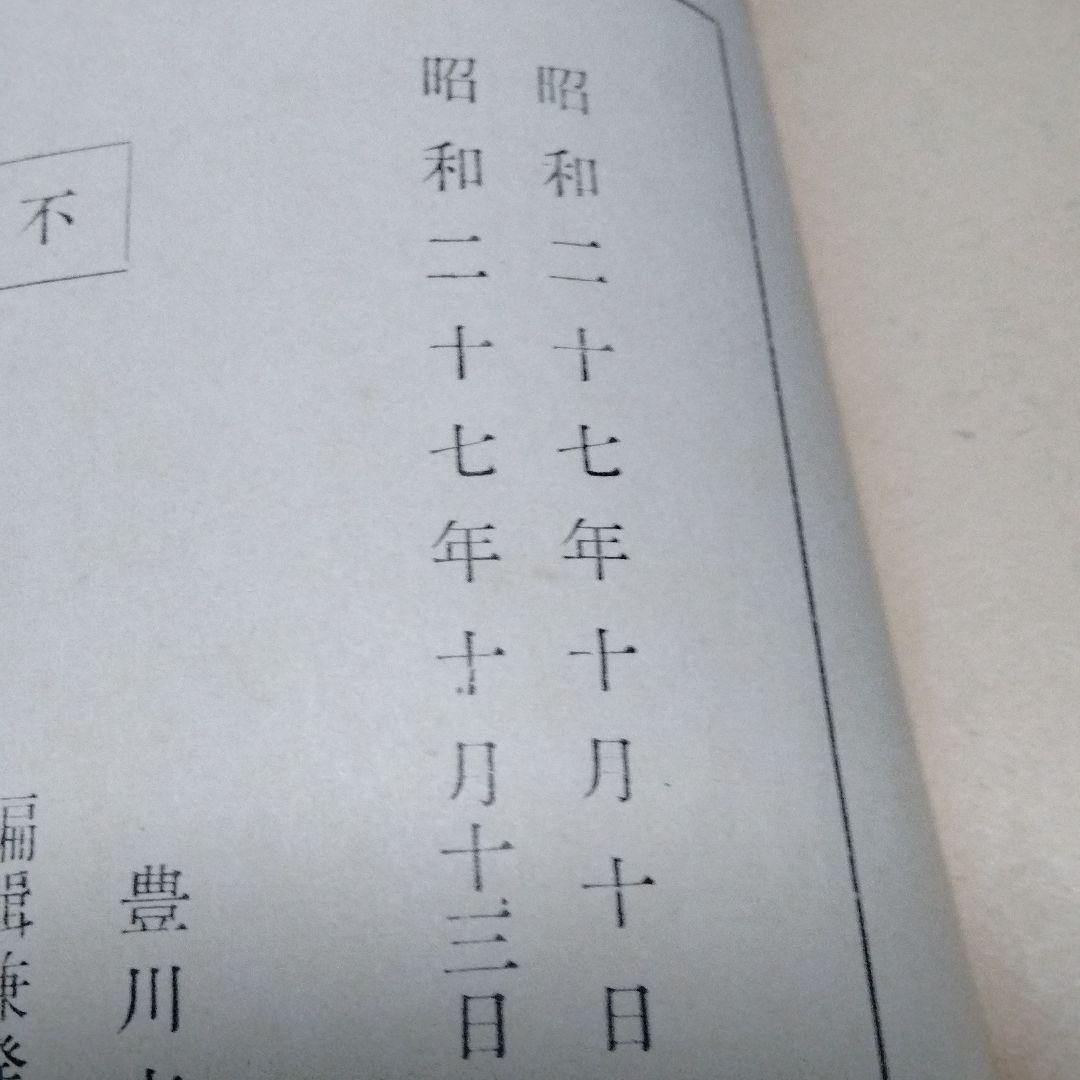 昭和二十七年十月十日
昭和二十七年十月十三日
豊川
不
編輯兼発